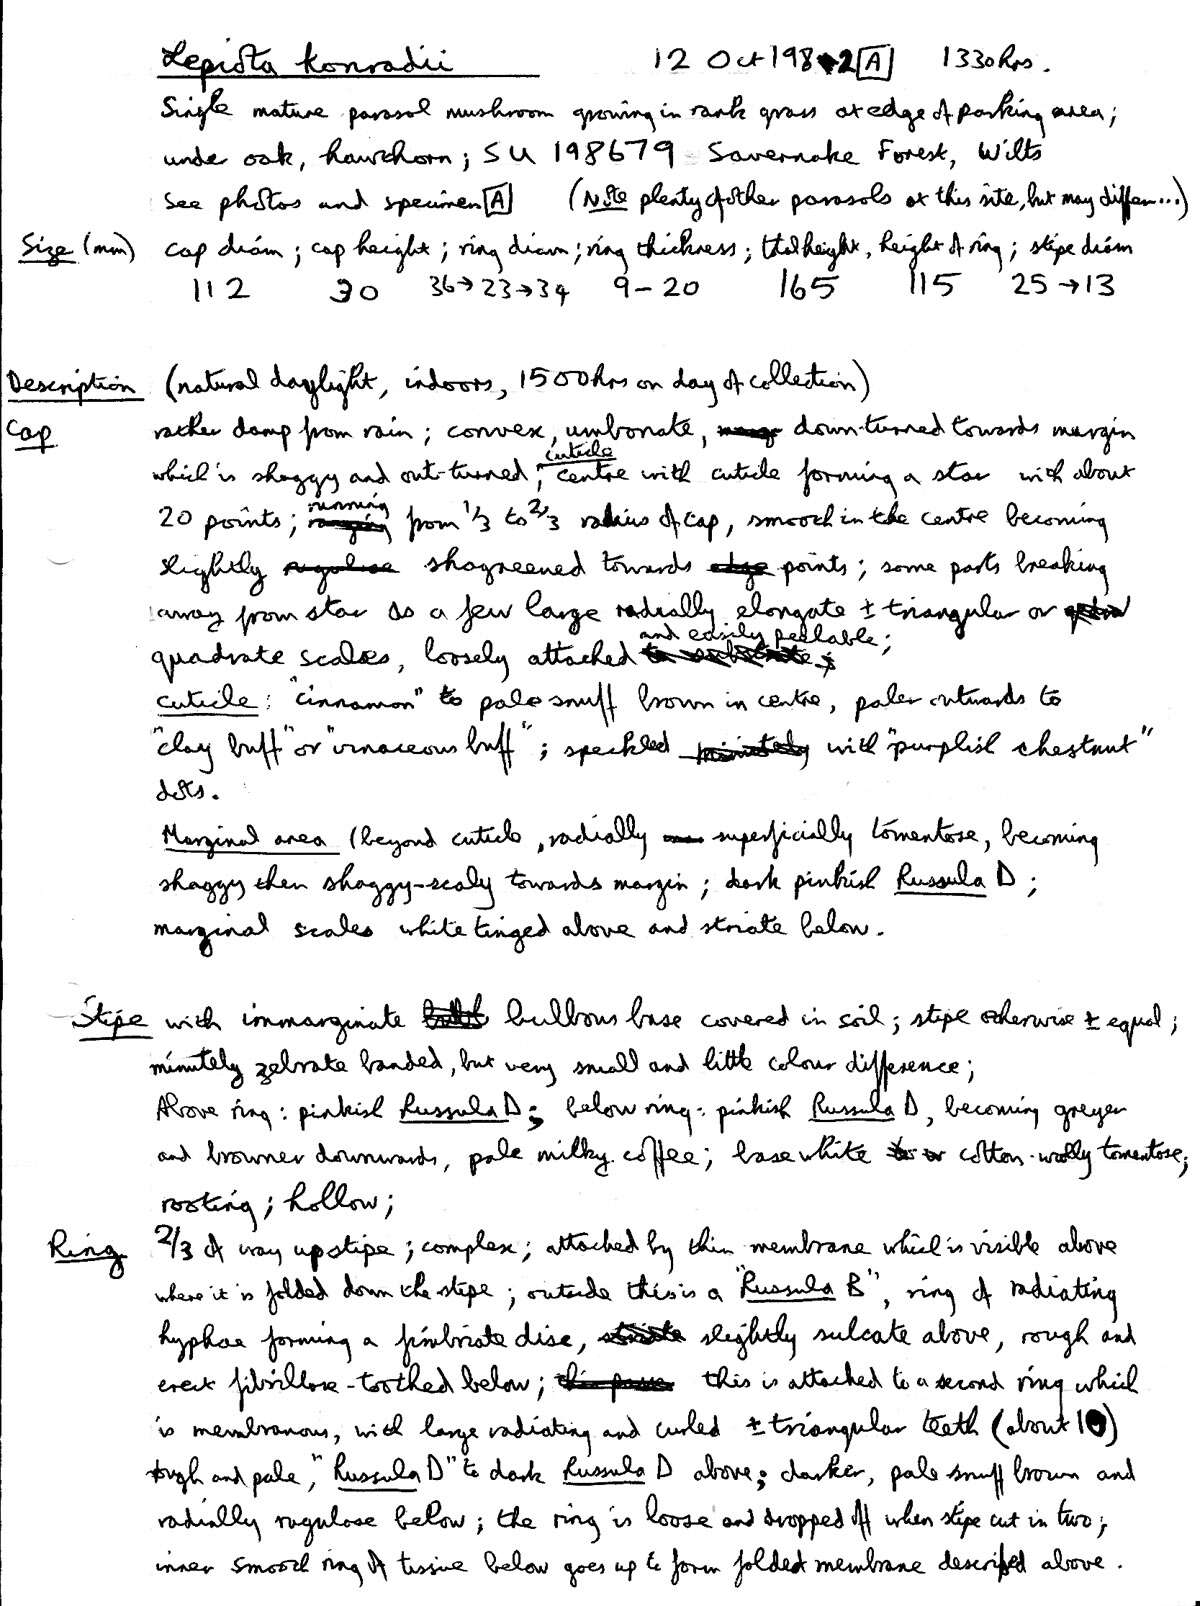 Lepiota konradii 12 Oct 1982 [A] 1330hrs.
Single mature parasol mushroom growing in rank grass at edge of parking area;
under oak, hawthorn; SU 198679 Savernake Forest, Wilts
See photos and specimen [A] (Note plenty of other parasols at this site, but may differ...)
Size (mm) cap diam; cap height; ring diam; ring thickness; total height, height of ring; stipe diam
112 30 36→23→34 9-20 165 115 25→13
Description (natural daylight, indoors, 1500hrs on day of collection)
Cap rather damp from rain; convex, umbonate, down-turned towards margin
which is shaggy and out-turned; cuticle centre with cuticle forming a star with about
20 points; running from 1/3 to 2/3 radius of cap, smooth in the centre becoming
slightly shagreened towards points; some parts breaking
away from star as a few large radially elongate ± triangular or
quadrate scales, loosely attached and easily peelable;
cuticle: "cinnamon" to pale snuff brown in centre, paler outwards to
"clay buff" or "vinaceous buff"; speckled with "purplish chestnut"
dots.
Marginal area (beyond cuticle, radially superficially tomentose, becoming
shaggy then shaggy-scaly towards margin; dark pinkish Russula D;
marginal scales white tinged above and striate below.
Stipe with immarginate bulbous base covered in soil; stipe otherwise ± equal;
minutely zebrate banded, but very small and little colour difference;
Above ring: pinkish Russula D; below ring: pinkish Russula D, becoming greyer
and browner downwards, pale milky coffee; base white cotton-woolly tomentose;
rooting; hollow;
Ring 2/3 of way up stipe; complex; attached by thin membrane which is visible above
where it is folded down the stipe; outside this is a "Russula B", ring of radiating
hyphae forming a fimbriate disc, slightly sulcate above, rough and
erect fibrillose-toothed below; this is attached to a second ring which
is membranous, with large radiating and curled ± triangular teeth (about 10)
tough and pale, "Russula D" to dark Russula D above; darker, pale snuff brown and
radially rugulose below; the ring is loose and dropped off when stipe cut in two;
inner smooth ring of tissue below goes up to form folded membrane described above.